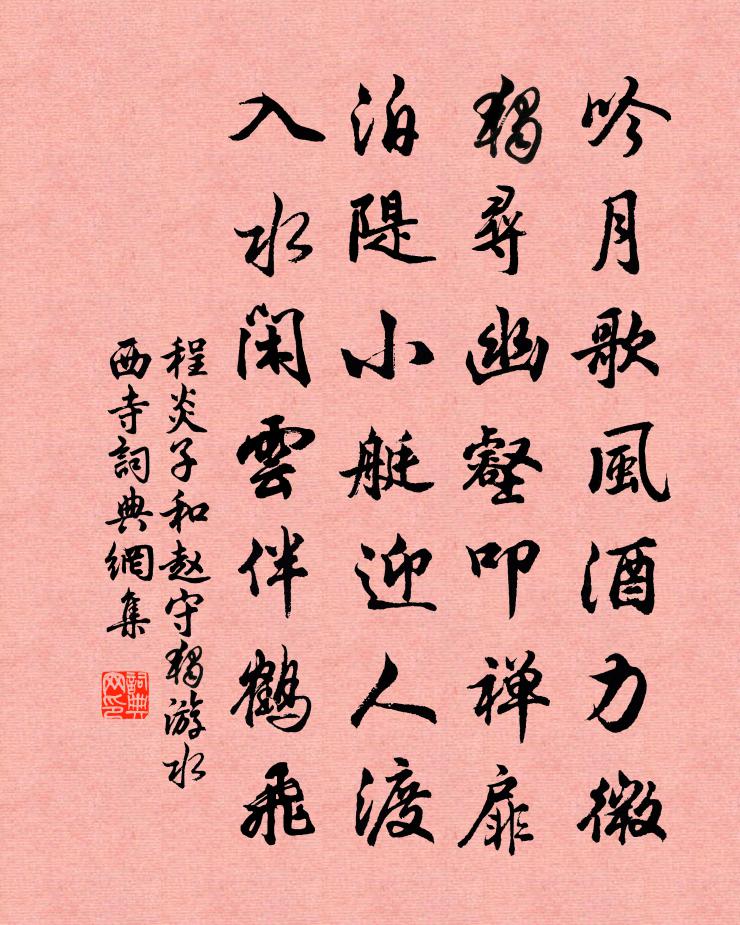 吟月歌風酒力微
獨尋幽壑叩禅扉
泊隄小艇迎人渡
入水闲雲伴鶴飛
程炎子和赵守獨游水
西寺詞典網集
詞典
网印